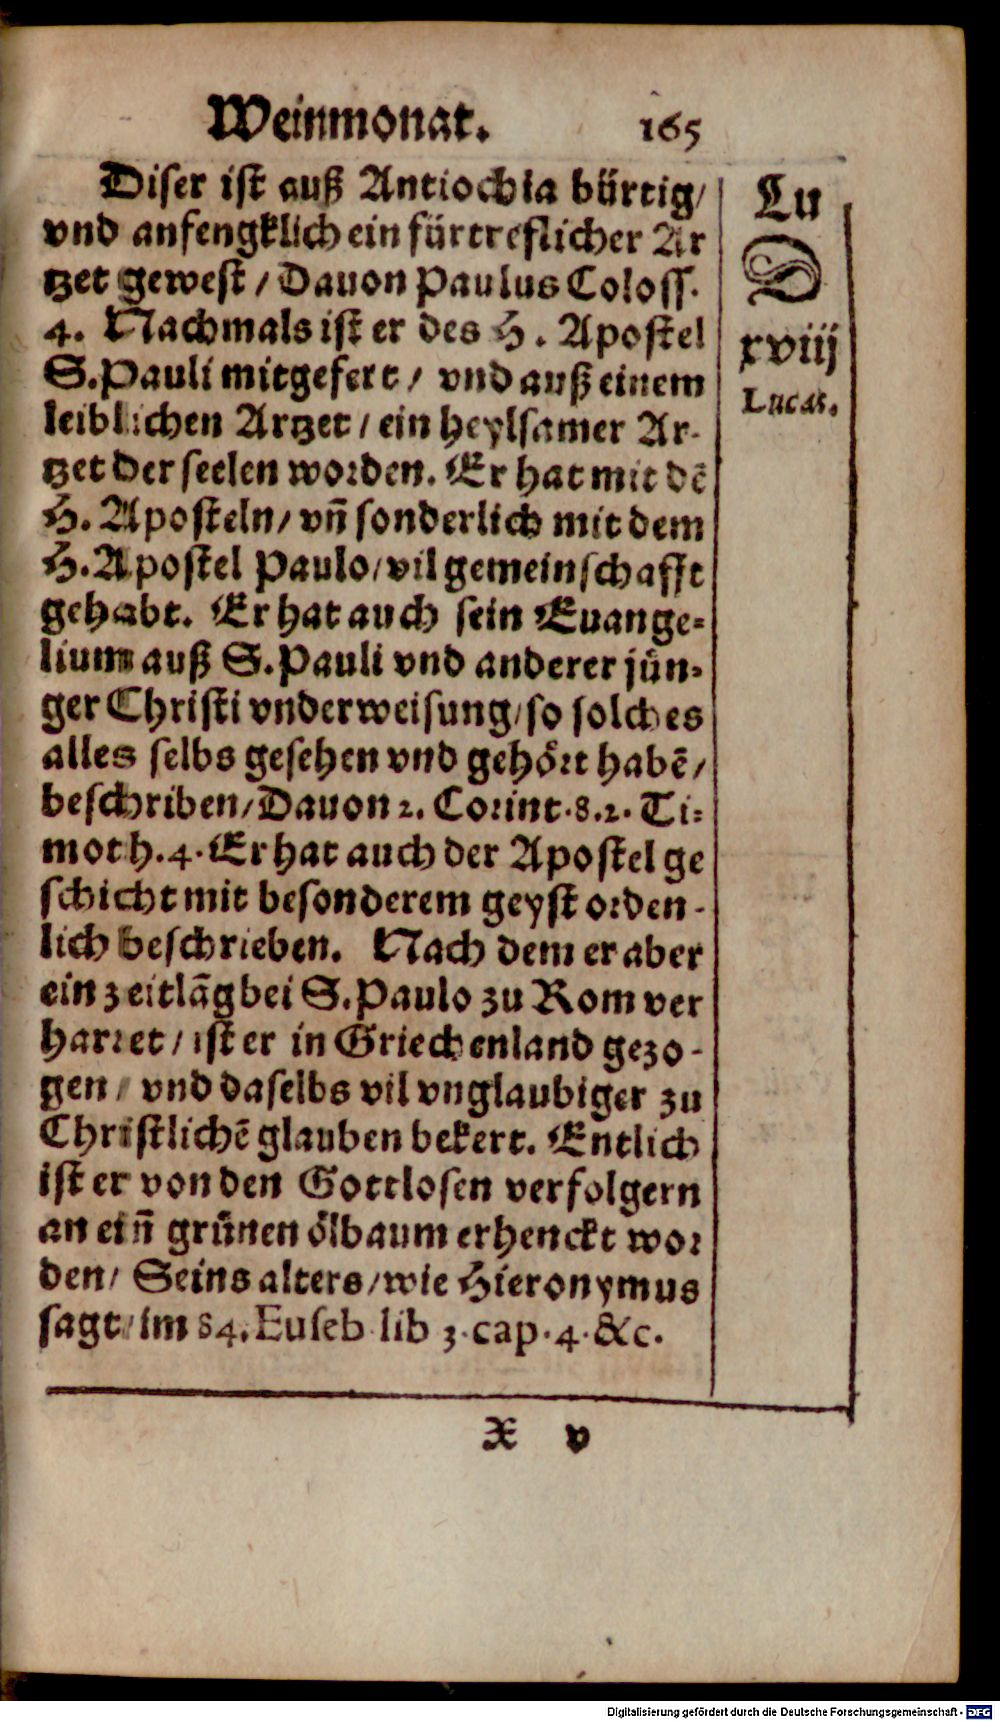 Weinmonat. 165
Diser ist auß Antiochia bürtig/
vnd anfengklich ein fürtreflicher Ar
tzet gewest / Dauon Paulus Coloss.
4. Nachmals ist er des H. Apostel
S. Pauli mitgefert / vnd auß einem
leiblichen Artzet / ein heylsamer Ar-
tzet der seelen worden. Er hat mit dẽ
H. Aposteln / vñ sonderlich mit dem
H. Apostel Paulo / vil gemeinschafft
gehabt. Er hat auch sein Euange-
lium auß S. Pauli vnd anderer jün-
ger Christi vnderweisung / so solches
alles selbs gesehen vnd gehört habẽ /
beschriben / Dauon 2. Corint. 8. 2. Ti-
moth. 4. Er hat auch der Apostel ge
schicht mit besonderem geyst orden-
lich beschrieben. Nach dem er aber
ein zeitlãg bei S. Paulo zu Rom ver
harret / ist er in Griechenland gezo-
gen / vnd daselbs vil vnglaubiger zu
Christlichẽ glauben bekert. Entlich
ist er von den Gottlosen verfolgern
an eiñ grünen ölbaum erhenckt wor
den / Seins alters / wie Hieronymus
sagt / im 84. Euseb lib 3. cap. 4. &c.
Lu
D
xviij
Lucas.
X v
Digitalisierung gefördert durch die Deutsche Forschungsgemeinschaft - DFG